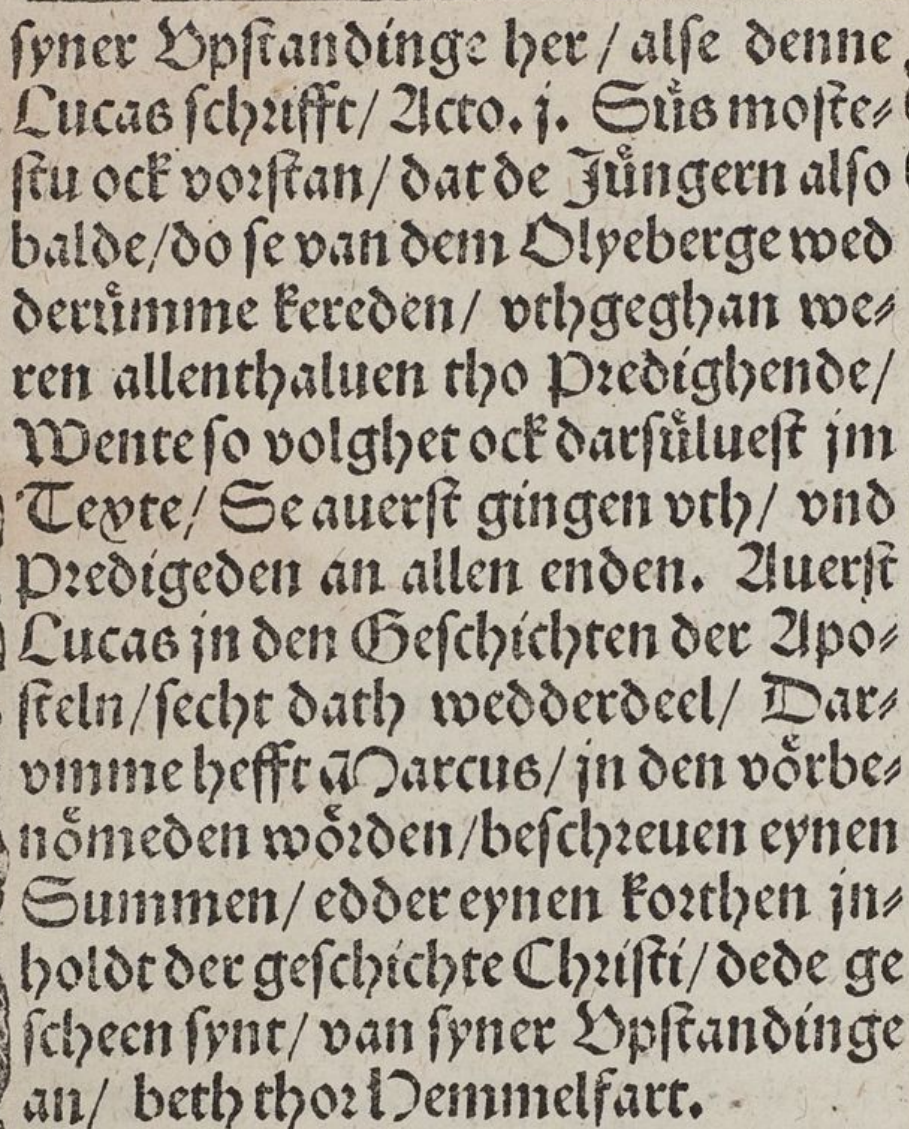 syner Vpstandinge her / alse denne
Lucas schrifft/ Acto. j. Sůs moste⸗
stu ock vorstan/ dat de Jůngern also
balde/do se van dem Olyeberge wed
derůmme kereden/ vthgeghan we⸗
ren allenthaluen tho Predighende/
Wente so volghet ock darsůluest jm
Texte/ Se auerst gingen vth/ vnd
Predigeden an allen enden. Auerst
Lucas jn den Geschichten der Apo⸗
steln/secht dath wedderdeel/ Dar⸗
vmme hefft Marcus/ jn den vo&#x364;rbe⸗
no&#x364;meden wo&#x364;rden/beschreuen eynen
Summen/ edder eynen korthen jn⸗
holdt der geschichte Christi/ dede ge
scheen synt/ van syner Vpstandinge
an/ beth thor Hemmelfart.